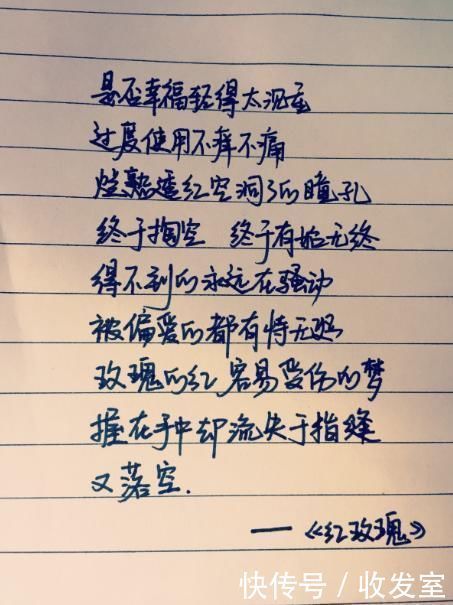 是否幸福轻得太沉重
过度使用不痒不痛
烂熟透红空洞了的瞳孔
终于掏空 终于有始无终
得不到的永远在骚动
被偏爱的都有恃无恐
玫瑰的红 容易受伤的梦
握在手中却流失于指缝
又落空.
——《红玫瑰》
快传号 / 收发室